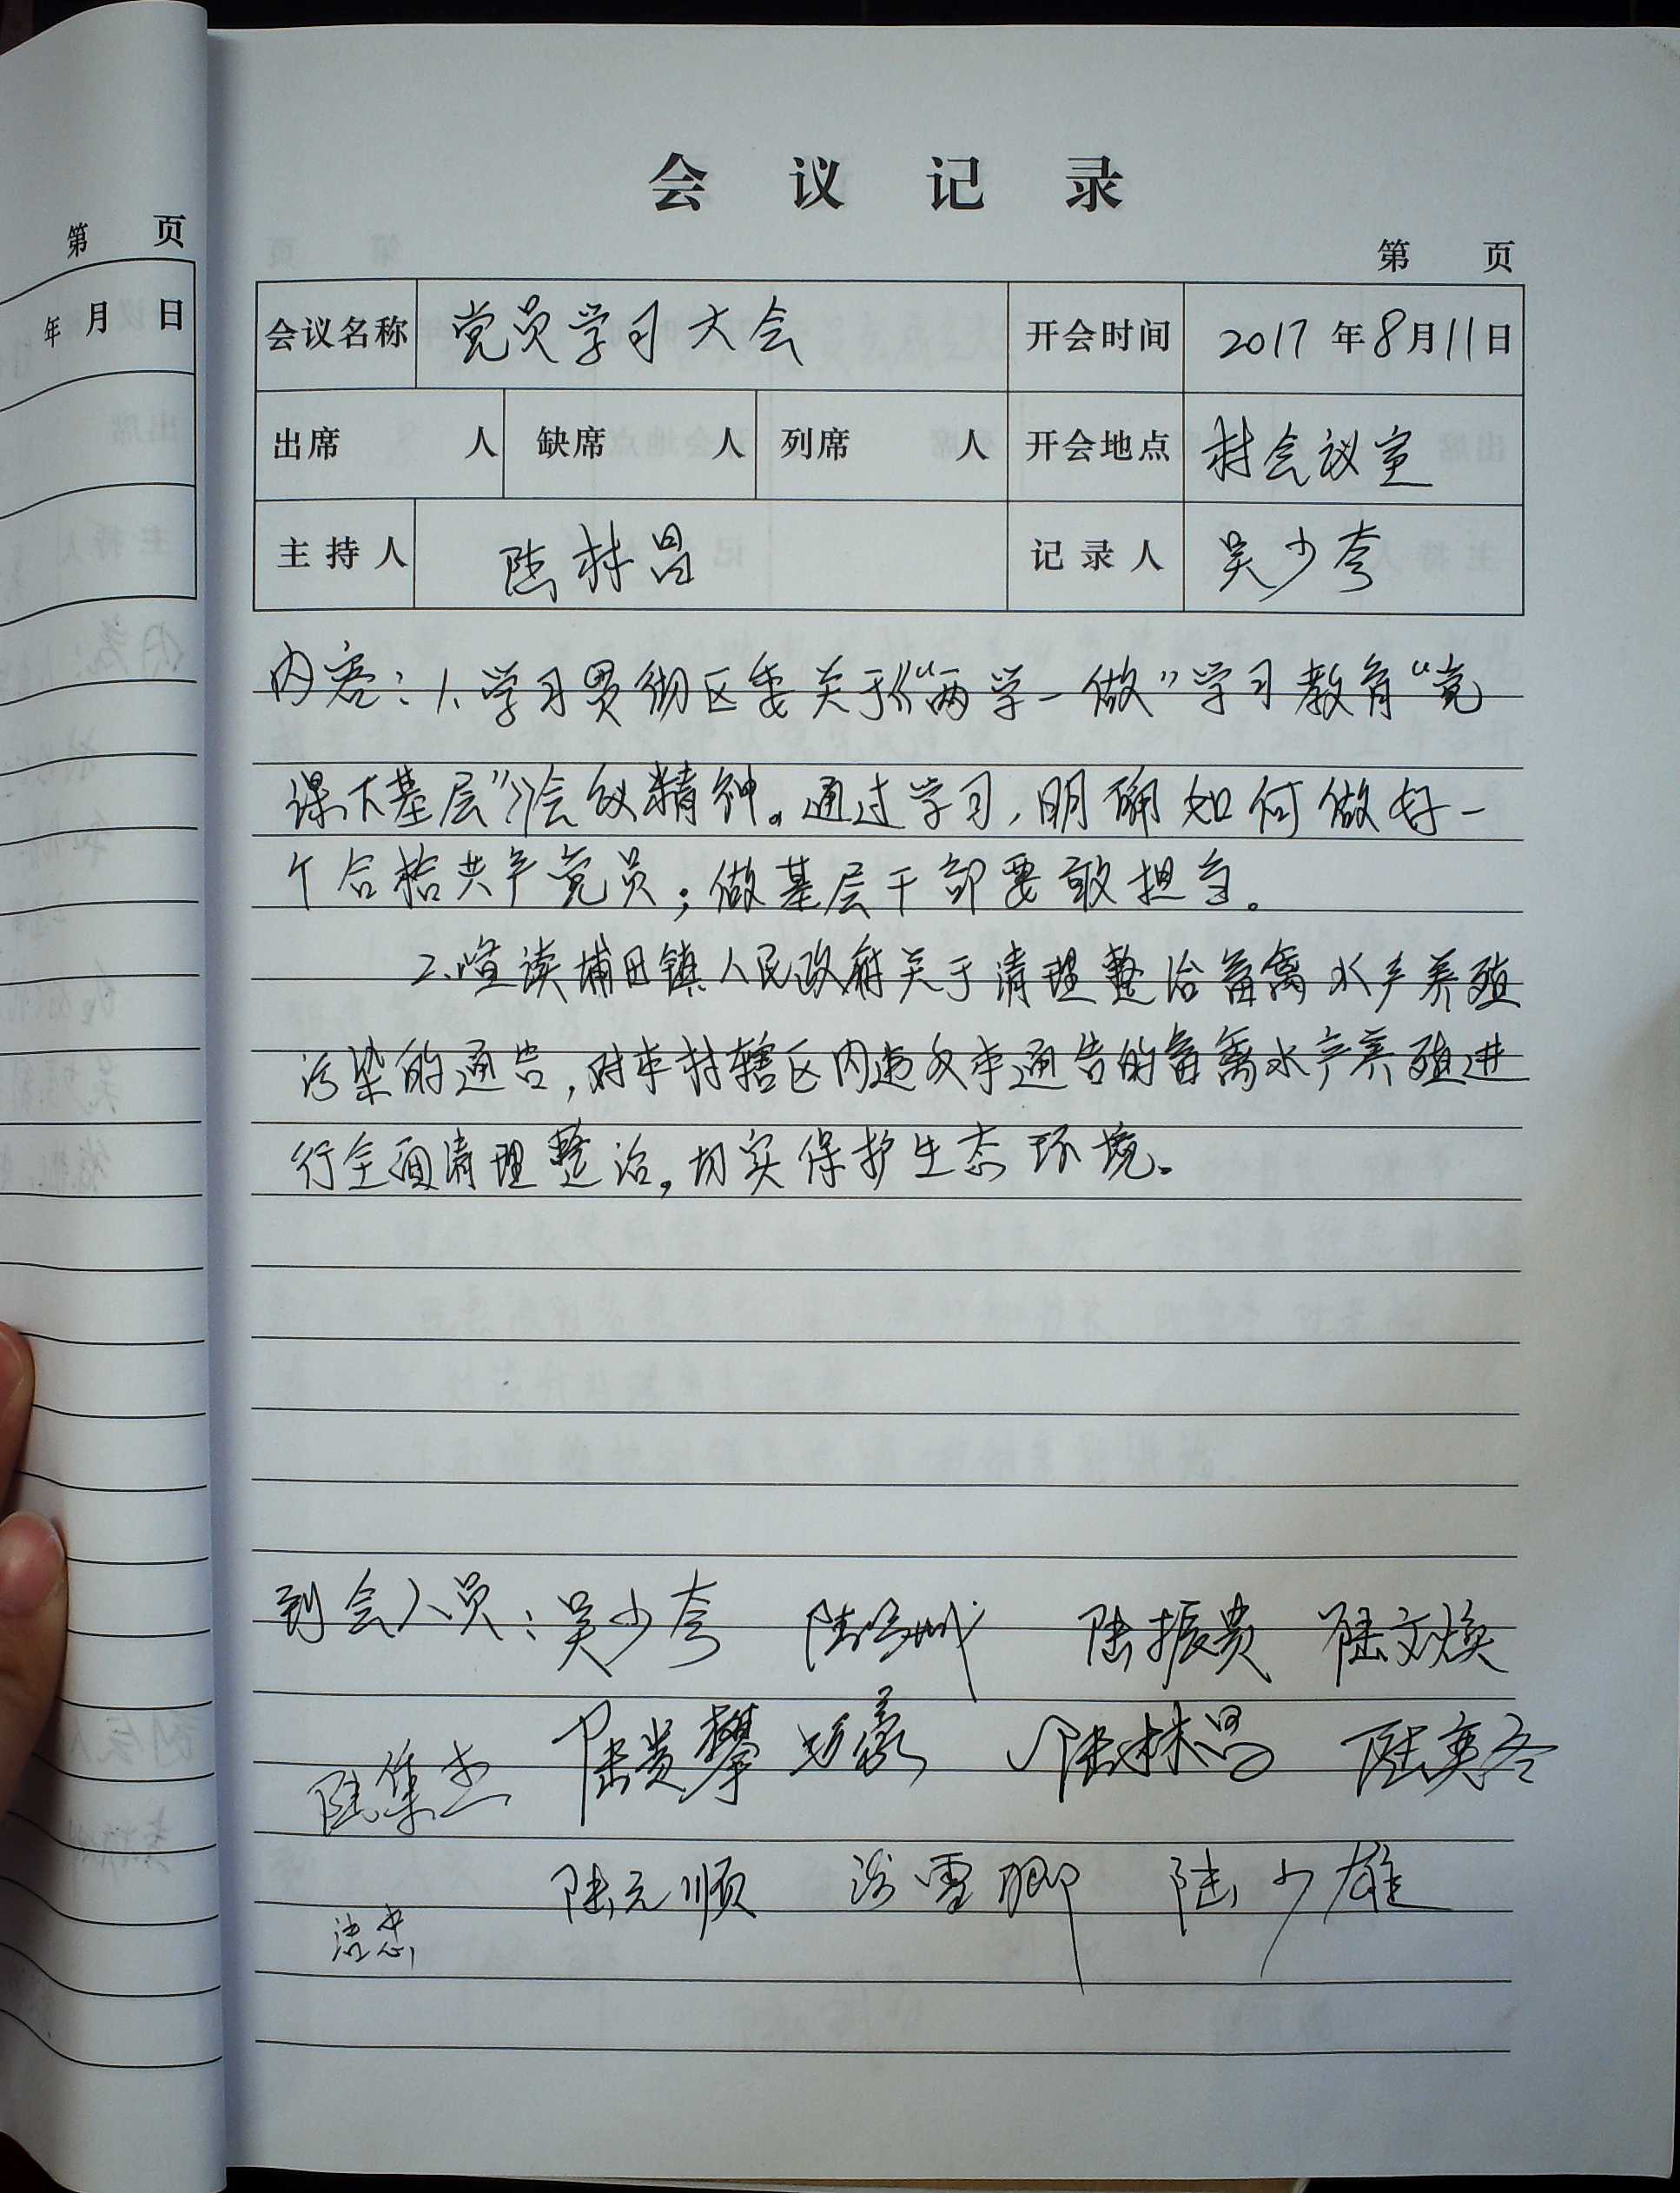 会议记录
第 页
第 页
年 月 日
会议名称 党员学习大会 开会时间 2017年8月11日
出席 人 缺席 人 列席 人 开会地点 村会议室
主持人 陆林昌 记录人 吴少夸
内容：1、学习贯彻区委关于《“两学一做”学习教育“党
课下基层”》会议精神。通过学习，明确如何做好一
个合格共产党员；做基层干部要敢担当。
2、宣读埔田镇人民政府关于清理整治畜禽水产养殖
污染的通告，对本村辖区内违反本通告的畜禽水产养殖进
行全面清理整治，切实保护生态环境。
到会人员：吴少夸 陆振贵 陆文焕
陆集 陆贵攀 陆林昌 陆
陆元顺 陆少雄